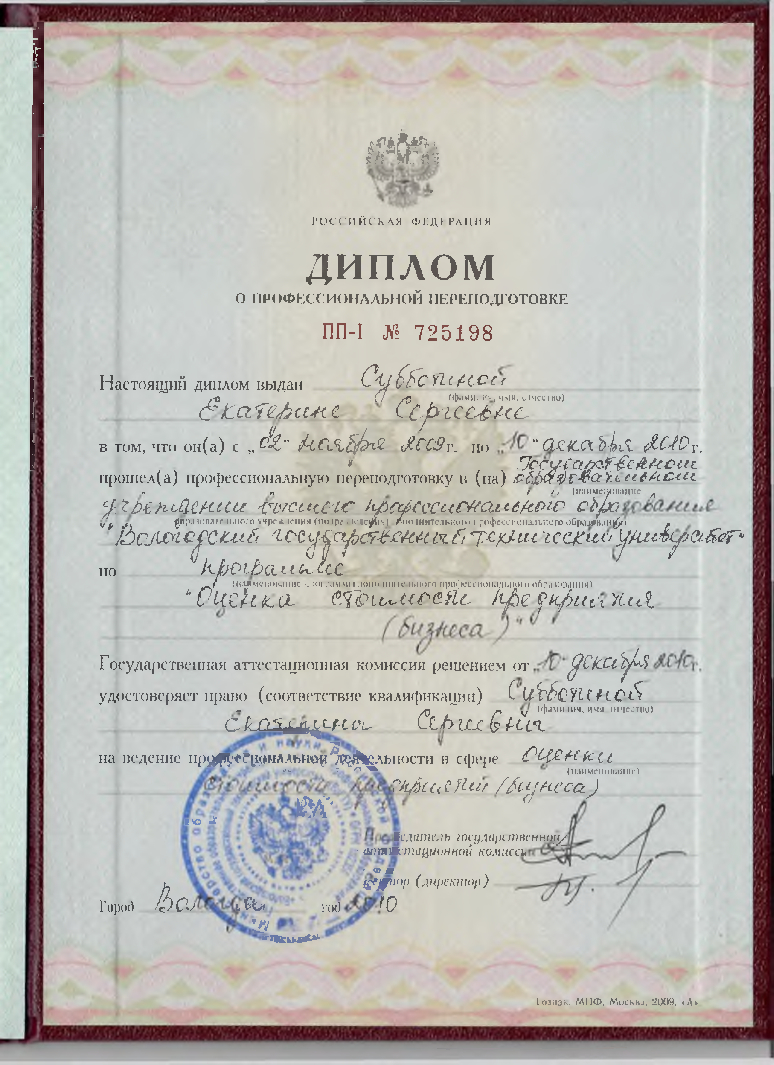 РОССИЙСКАЯ ФЕДЕРАЦИЯ
ДИПЛОМ
О ПРОФЕССИОНАЛЬНОЙ ПЕРЕПОДГОТОВКЕ
ПП-I № 725198
Настоящий диплом выдан Субботиной
(фамилия, имя, отчество)
Екатерине Сергеевне
в том, что он(а) с „02" ноября 2009г. по „10" декабря 2010г.
Государственном
прошел(а) профессиональную переподготовку в (на) образовательном
(наименование
учреждении высшего профессионального образования
образовательного учреждения (подразделения) дополнительного профессионального образования)
"Вологодский государственный технический университет"
по программе
(наименование программы дополнительного профессионального образования)
"Оценка стоимости предприятия
(бизнеса)"
Государственная аттестационная комиссия решением от „10" декабря 2010г.
удостоверяет право (соответствие квалификации) Субботиной
(фамилия, имя, отчество)
Екатерины Сергеевны
на ведение профессиональной деятельности в сфере оценки
(наименование)
стоимости предприятий (бизнеса)
Председатель государственной
аттестационной комиссии
Ректор (директор)
Город Вологда год 2010
Гознак, МПФ, Москва, 2009, «А».